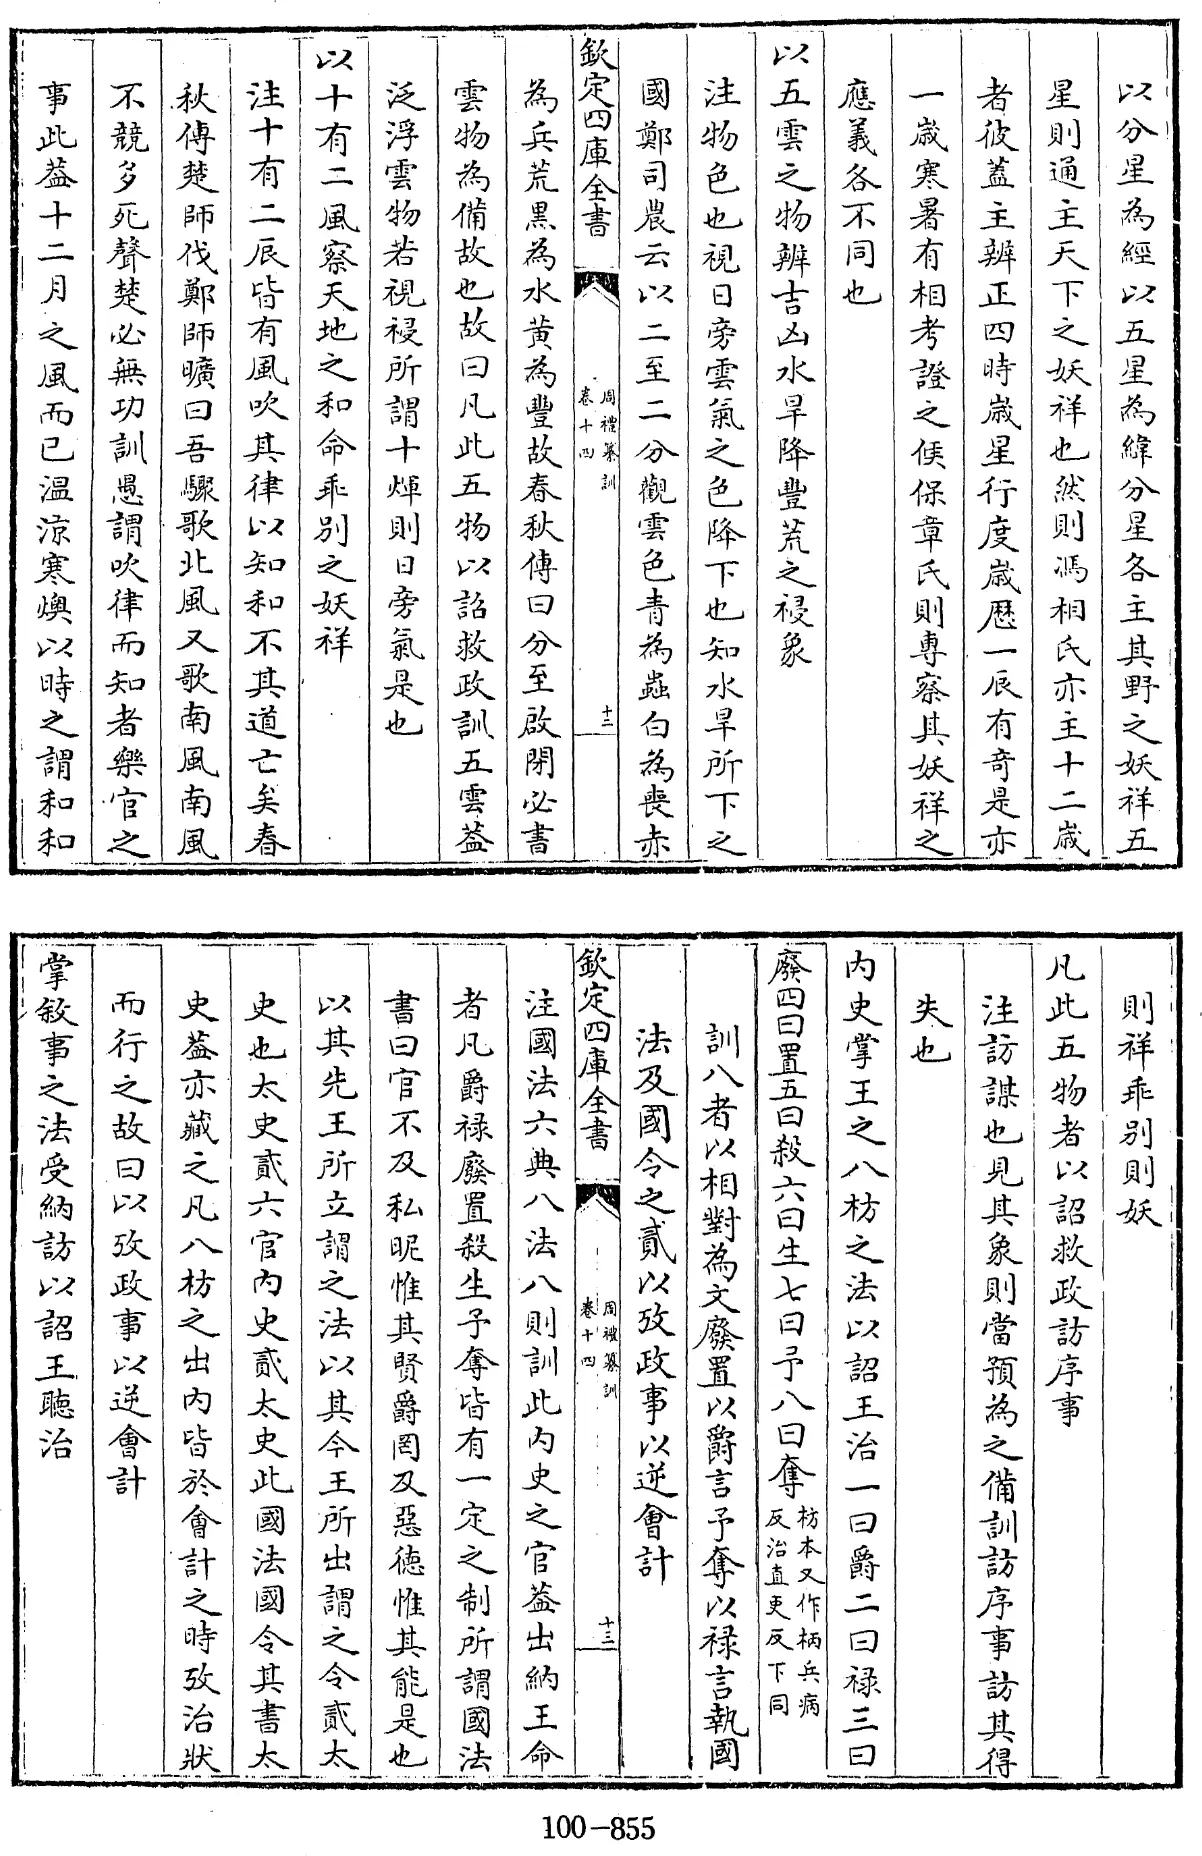 以分星為經以五星為緯分星各主其野之妖祥五
星則通主天下之妖祥也然則馮相氏亦主十二歲
者彼蓋主辨正四時歲星行度歲歷一辰有奇是亦
一歲寒暑有相考證之候保章氏則專察其妖祥之
應義各不同也
以五雲之物辨吉凶水旱降豐荒之祲象
注物色也視日旁雲氣之色降下也知水旱所下之
國鄭司農云以二至二分觀雲色青為蟲白為喪赤
欽定四庫全書
周禮纂訓
卷十四
十二
為兵荒黑為水黄為豐故春秋傳曰分至啟閉必書
雲物為備故也故曰凡此五物以詔救政訓五雲葢
泛浮雲物若視祲所謂十煇則日旁氣是也
以十有二風察天地之和命乖别之妖祥
注十有二辰皆有風吹其律以知和不其道亡矣春
秋傳楚師伐鄭師曠曰吾驟歌北風又歌南風南風
不競多死聲楚必無功訓愚謂吹律而知者樂官之
事此葢十二月之風而已温涼寒燠以時之謂和和
則祥乖别則妖
凡此五物者以詔救政訪序事
注訪謀也見其象則當預為之備訓訪序事訪其得
失也
内史掌王之八枋之法以詔王治一曰爵二曰禄三曰
廢四曰置五曰殺六曰生七曰予八曰奪
枋本又作柄兵病
反治直吏反下同
訓八者以相對為文廢置以爵言予奪以禄言執國
法及國令之貳以攷政事以逆會計
欽定四庫全書
周禮纂訓
卷十四
十三
注國法六典八法八則訓此内史之官葢出納王命
者凡爵禄廢置殺生予奪皆有一定之制所謂國法
書曰官不及私昵惟其賢爵罔及惡德惟其能是也
以其先王所立謂之法以其今王所出謂之令貳太
史也太史貳六官内史貳太史此國法國令其書太
史葢亦藏之凡八枋之出内皆於會計之時攷治狀
而行之故曰以攷政事以逆會計
掌敘事之法受納訪以詔王聽治
100-855